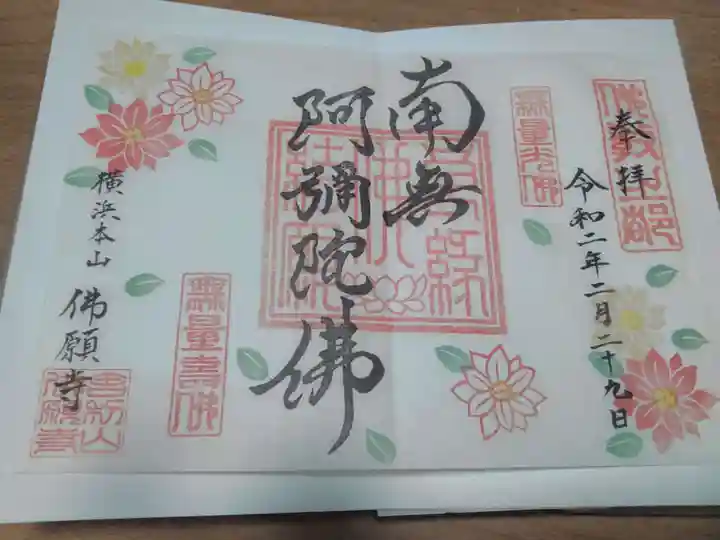 奉拝
令和二年二月二十九日
無量光佛
南無
阿彌陀佛
無量壽佛
横浜本山
佛願寺